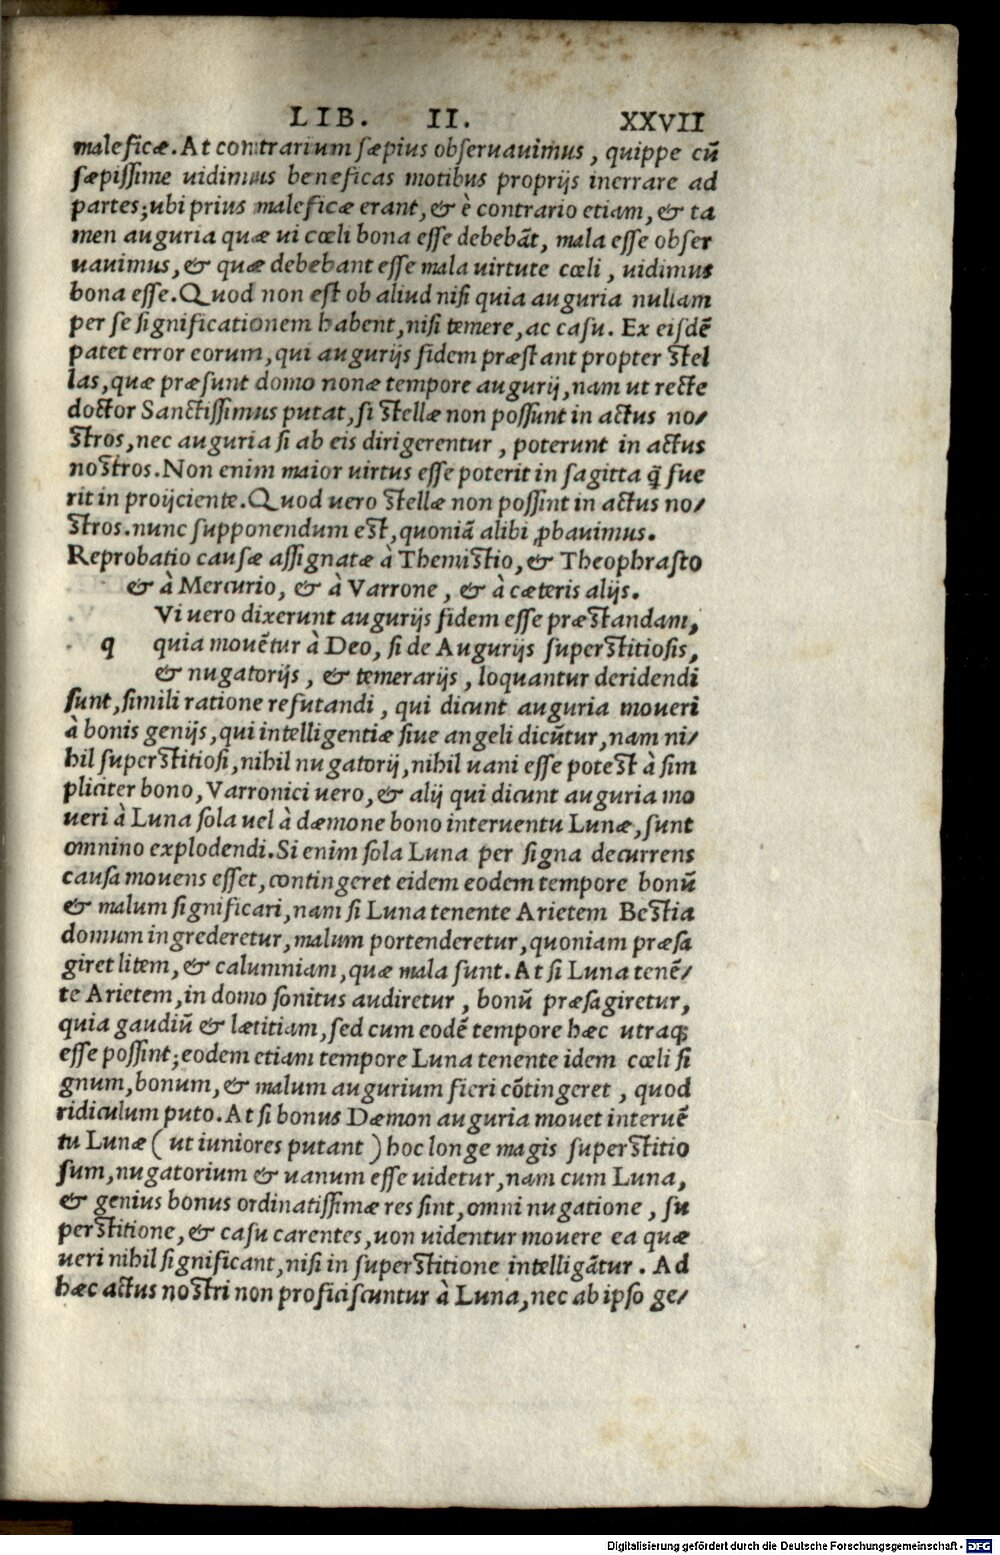 LIB. II. XXVII
maleficæ. At contrarium sæpius obseruauimus, quippe cũ
sæpissime uidimus beneficas motibus proprijs inerrare ad
partes; ubi prius maleficæ erant, & è contrario etiam, & ta
men auguria quæ ui cœli bona esse debebãt, mala esse obser
uauimus, & quæ debebant esse mala uirtute cœli, uidimus
bona esse. Quod non est ob aliud nisi quia auguria nullam
per se significationem habent, nisi temere, ac casu. Ex eisdẽ
patet error eorum, qui augurijs fidem præstant propter stel
las, quæ præsunt domo nonæ tempore augurij, nam ut recte
doctor Sanctissimus putat, si stellæ non possunt in actus no/
stros, nec auguria si ab eis dirigerentur, poterunt in actus
nostros. Non enim maior uirtus esse poterit in sagitta q̃ fue
rit in proijciente. Quod uero stellæ non possint in actus no/
stros. nunc supponendum est, quoniã alibi ꝓbauimus.
Reprobatio causæ assignatæ à Themistio, & Theophrasto
& à Mercurio, & à Varrone, & à cæteris alijs.
Vi uero dixerunt augurijs fidem esse præstandam,
q quia mouẽtur à Deo, si de Augurijs superstitiosis,
& nugatorijs, & temerarijs, loquantur deridendi
sunt, simili ratione refutandi, qui dicunt auguria moueri
à bonis genijs, qui intelligentiæ siue angeli dicũtur, nam ni/
hil superstitiosi, nihil nugatorij, nihil uani esse potest à sim
pliciter bono, Varronici uero, & alij qui dicunt auguria mo
ueri à Luna sola uel à dæmone bono interuentu Lunæ, sunt
omnino explodendi. Si enim sola Luna per signa decurrens
causa mouens esset, contingeret eidem eodem tempore bonũ
& malum significari, nam si Luna tenente Arietem Bestia
domum ingrederetur, malum portenderetur, quoniam præsa
giret litem, & calumniam, quæ mala sunt. At si Luna tenẽ/
te Arietem, in domo sonitus audiretur, bonũ præsagiretur,
quia gaudiũ & lætitiam, sed cum eodẽ tempore hæc utraqꝫ
esse possint; eodem etiam tempore Luna tenente idem cœli si
gnum, bonum, & malum augurium fieri cõtingeret, quod
ridiculum puto. At si bonus Dæmon auguria mouet interuẽ
tu Lunæ (ut iuniores putant) hoc longe magis superstitio
sum, nugatorium & uanum esse uidetur, nam cum Luna,
& genius bonus ordinatissimæ res sint, omni nugatione, su
perstitione, & casu carentes, uon uidentur mouere ea quæ
ueri nihil significant, nisi in superstitione intelligãtur. Ad
hæc actus nostri non proficiscuntur à Luna, nec ab ipso ge/
Digitalisierung gefördert durch die Deutsche Forschungsgemeinschaft - DFG